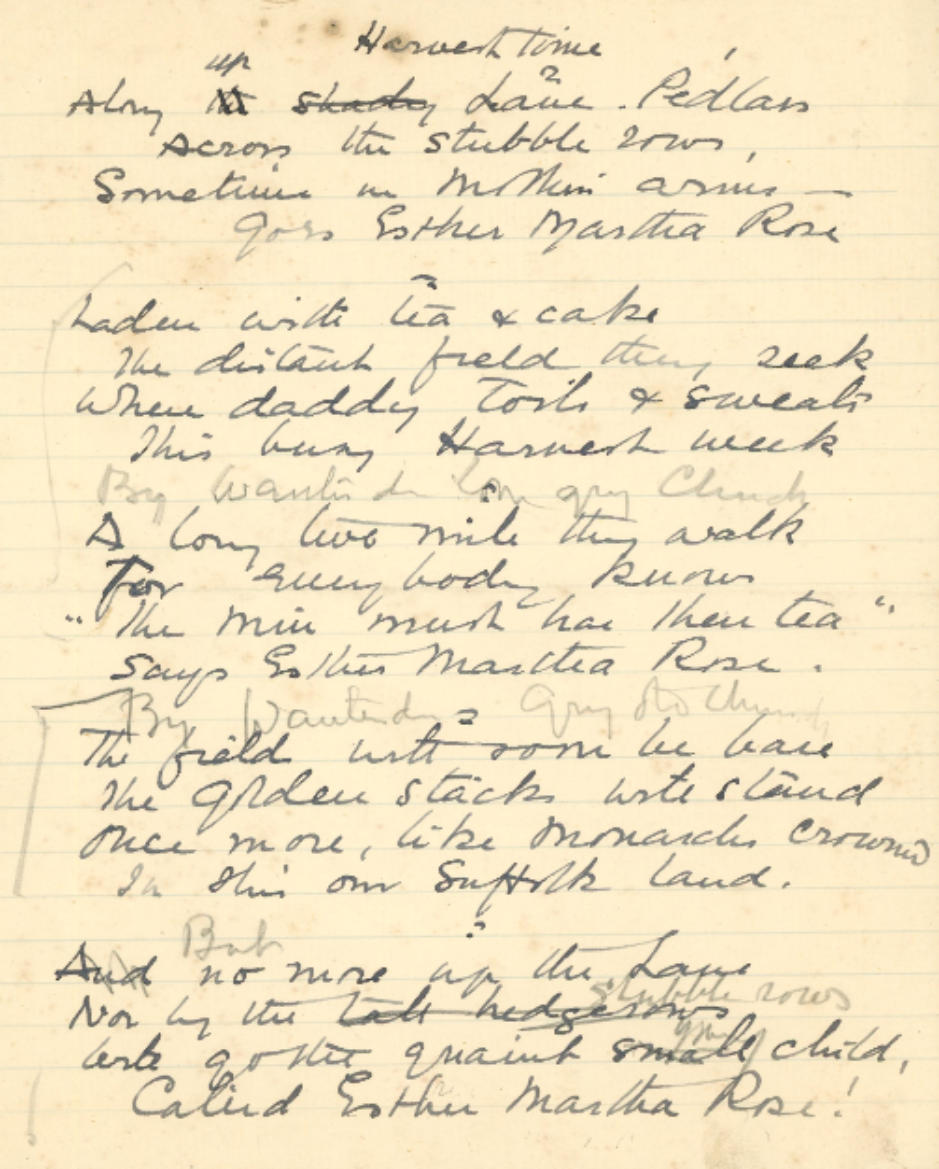 Harvest time
up
Along shady Lane. Pedlars
Across the stubble rows,
Sometime in Mothers arms —
Goes Esther Martha Rose
Laden with tea & cake
The distant field they seek
Where daddy Toils & sweats
This busy Harvest week
By Wantisden grey Church
A long two mile they walk
For everybody knows
"The Men must have their tea"
Says Esther Martha Rose.
By Wantisden's Grey old Church
The field will soon be bare
The golden stacks will stand
Once more, like Monarchs crowned
In this our Suffolk land.
But
And no more up the Lane
stubble rows
Nor by the tall hedgerows
Will go the quaint small child,
Called Esther Martha Rose!